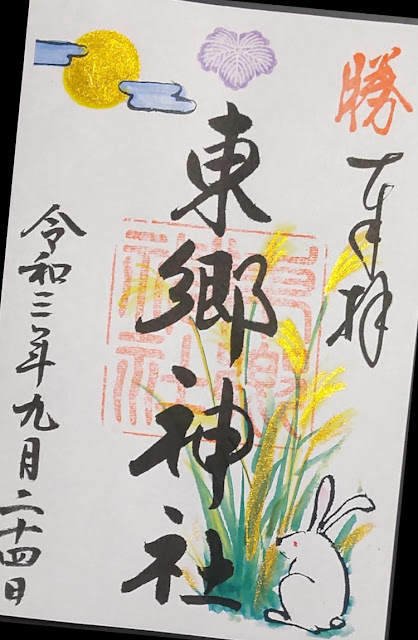 勝
奉拝
東郷神社
東郷神社
令和三年九月二十四日